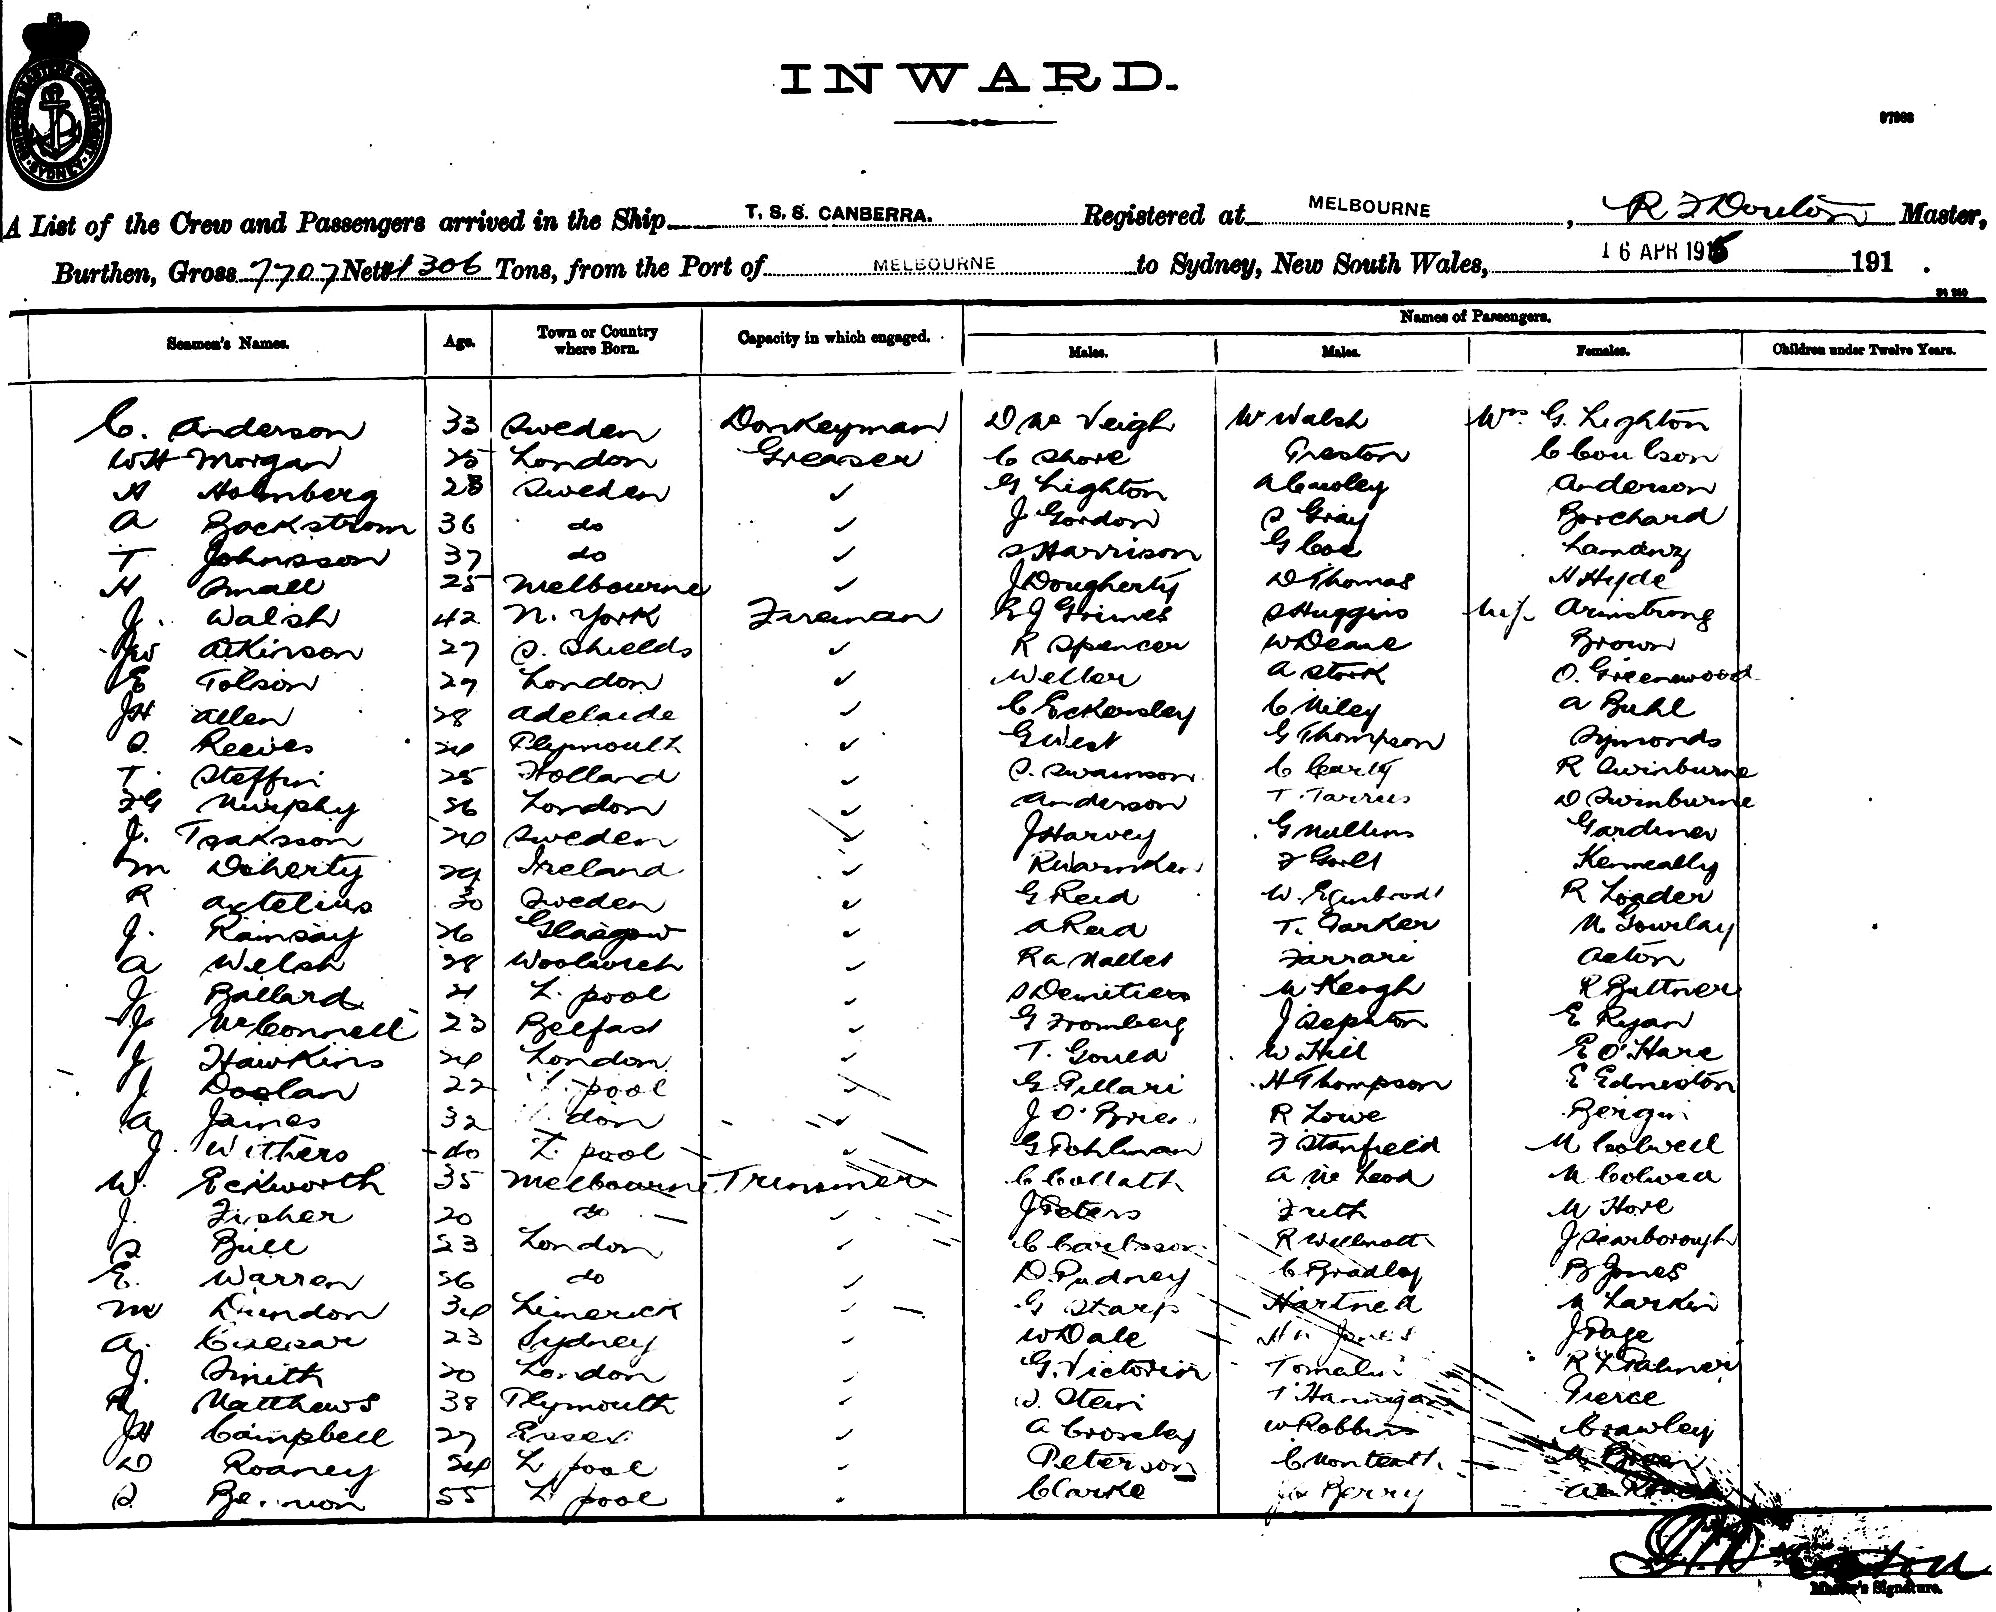 INWARD.
A List of the Crew and Passengers arrived in the Ship T. S. S. CANBERRA. Registered at MELBOURNE, Master,
Burthen, Gross 7707 Nett 1306 Tons, from the Port of MELBOURNE to Sydney, New South Wales, 16 APR 1915 191 .
Names of Passengers.
Seamen's Names. Age. Town or Country where Born. Capacity in which engaged. Males. Males. Females. Children under Twelve Years.
C. Anderson 33 Sweden Donkeyman D Mc Veigh W Walsh Mrs G. Lighton
WH Morgan 25 London Greaser C Shore Preston C Coulson
A Holmberg 28 Sweden ✓ G Lighton A Cawley Anderson
A Backstrom 36 do ✓ J Gordon S Gray Borchard
T Johnsson 37 do ✓ S Harrison G Coe
H Small 25 Melbourne ✓ J Dougherty D Thomas H Hyde
J. Walsh 42 N. York Fireman J Grimes S Huggins Armstrong
JW Atkinson 27 S. Shields ✓ R Spencer W Deane Brown
E Tolson 29 London ✓ Weller A Stork O. Greenwood
JH Allen 28 Adelaide ✓ C Eckersley C Niley A Buhl
S. Reeves 24 Plymouth ✓ G West G Thompson Symonds
T. Steffin 25 Holland ✓ S. Swainson C Carty R Swinburne
FG Murphy 26 London ✓ Anderson T. D Swinburne
J. Isaksson 24 Sweden ✓ J Harvey G Mullins Gardiner
M Doherty 29 Ireland ✓ Kenneally
R Axtelius 30 Sweden ✓ G Reid W. R Loader
J. Ramsay 26 Glasgow ✓ A Reid T. Parker M Gourlay
A Welsh 28 Woolwich ✓ R A Mallet Farrari Acton
J Ballard 21 L. pool ✓ S Demetiers M Keogh R Buttner
J McConnell 23 Belfast ✓ G Fromberg J Sephton E Ryan
J Hawkins 24 London ✓ T. Gould W Hill E O'Hare
J Doolan 22 L. pool ✓ G. Pellari H Thompson E Edmeston
A James 32 don ✓ J O'Brien R Lowe Bergin
J. Withers 40 L. pool ✓ G Pohlman F Stanfield M Colwell
W. Eckworth 35 Melbourne Trimmer C Collath A McLeod M Colwell
J. Fisher 20 do ✓ J Peters Frith M Hore
S Bull 23 London ✓ C Carlsson R Willmott J Scarborough
E. Warren 26 do ✓ D. Pudney C Bradley B Jones
M Dundon 34 Limerick ✓ G Sharp Hartned M Larkin
A. 23 Sydney ✓ W Dale Jones J Page
J. Smith 20 London ✓ G. Victorin Tomalin R L Palmer
R Matthews 38 Plymouth ✓ S. Stein T Hannigan Pierce
JH Campbell 27 Essex ✓ A Crossley W Robbins Crawley
D Roaney 24 L pool ✓ Peterson C Monteath M Green
S. 55 L pool ✓ C Clarke Jas Berry
Master's Signature.